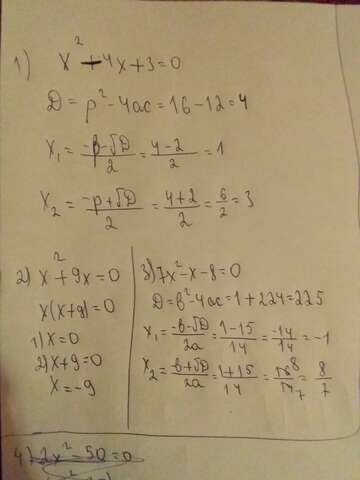 1) x² - 4x + 3 = 0
D = p² - 4ac = 16 - 12 = 4
x₁ = (-p - √D)/2 = (4 - 2)/2 = 1
x₂ = (-p + √D)/2 = (4 + 2)/2 = 6/2 = 3
2) x² + 9x = 0
x(x + 9) = 0
1) x = 0
2) x + 9 = 0
x = -9
3) 7x² - x - 8 = 0
D = b² - 4ac = 1 + 224 = 225
x₁ = (-b - √D)/2a = (1 - 15)/14 = -14/14 = -1
x₂ = (-b + √D)/2a = (1 + 15)/14 = 16 8/14 7 = 8/7
4) 2x² - 50 = 0